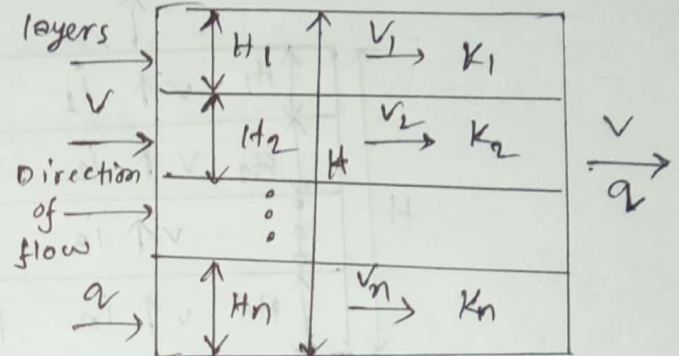 layers
V
Direction
of
flow
q
H1
H2
H
Hn
V1
K1
V2
K2
Vn
Kn
V
q